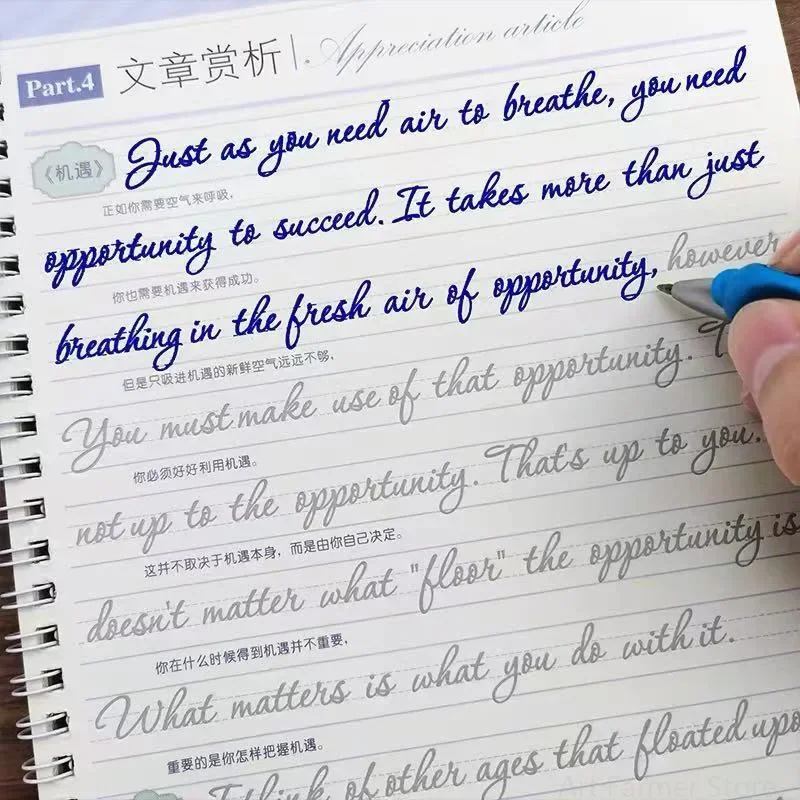 Part.4 文章赏析 Appreciation article
《机遇》 Just as you need air to breathe, you need
正如你需要空气来呼吸,
opportunity to succeed. It takes more than just
你也需要机遇来获得成功。
breathing in the fresh air of opportunity, however
但是只吸进机遇的新鲜空气远远不够,
You must make use of that opportunity. T
你必须好好利用机遇。
not up to the opportunity. That's up to you.
这并不取决于机遇本身，而是由你自己决定。
doesn't matter what "floor" the opportunity is
你在什么时候得到机遇并不重要,
What matters is what you do with it.
重要的是你怎样把握机遇。
I think of other ages that floated upo
Art Farmer Store